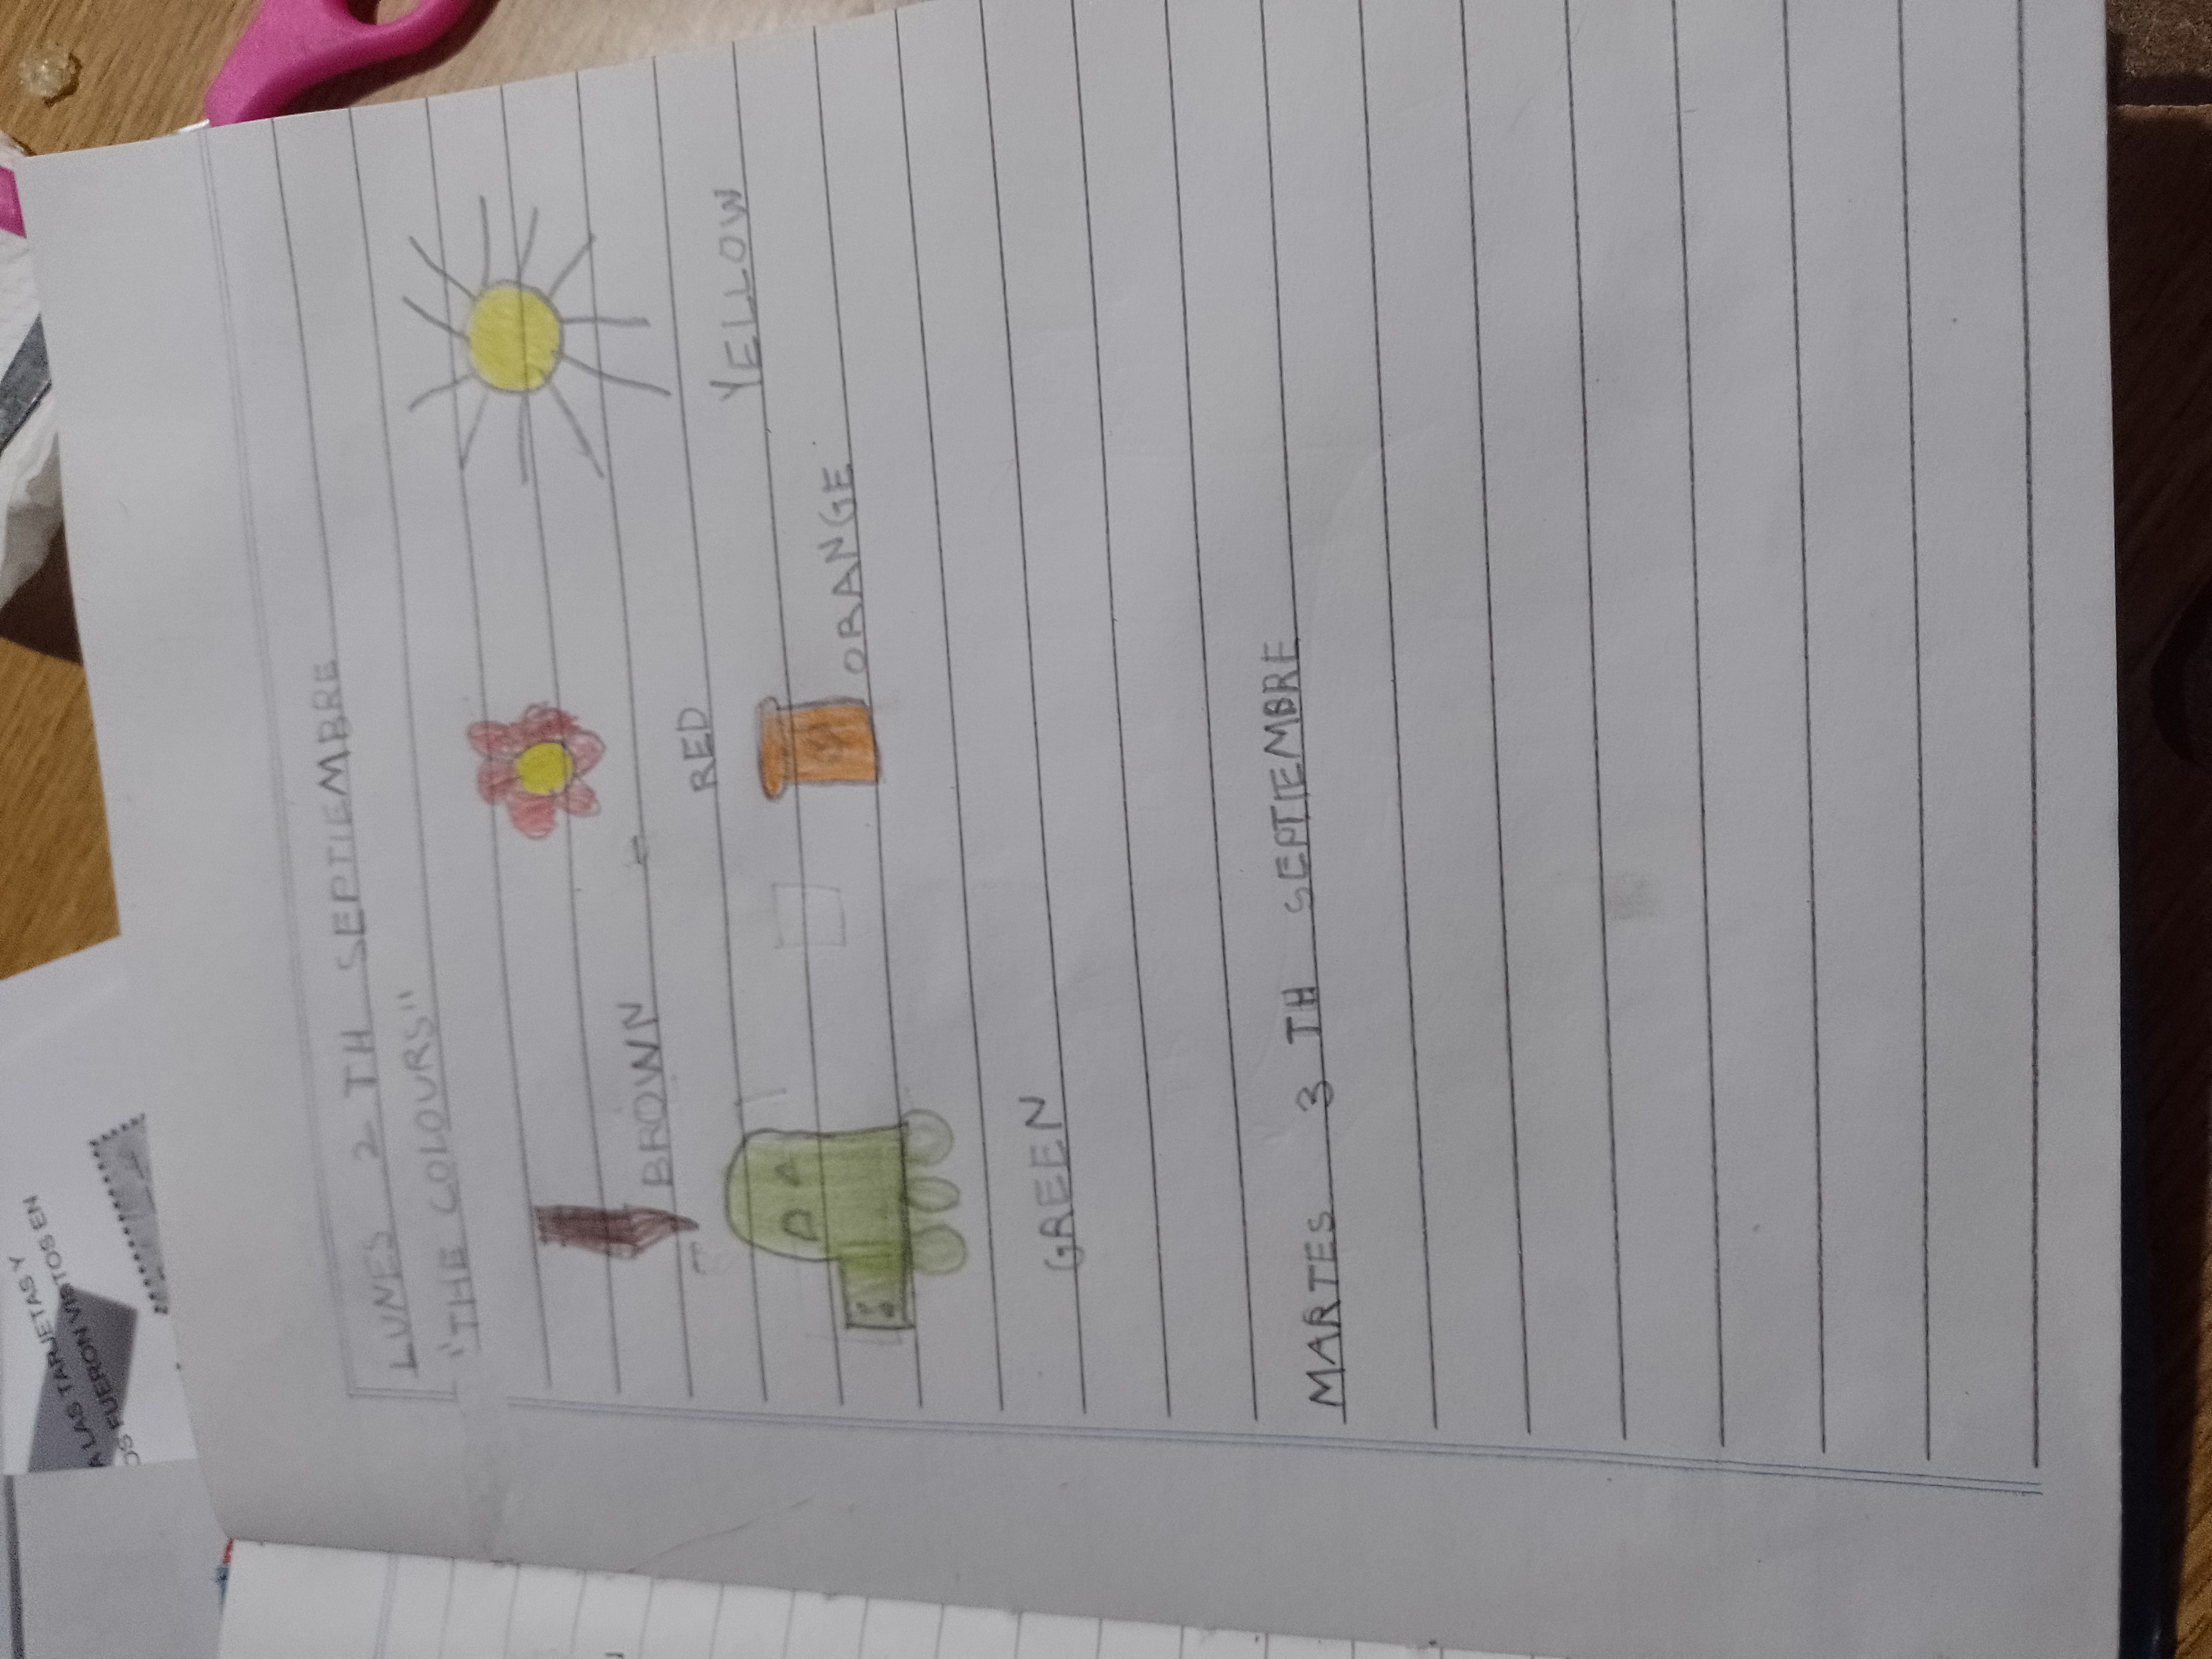 LUNES 2 TH SEPTIEMBRE
"THE COLOURS"
BROWN
RED
YELLOW
ORANGE
GREEN
MARTES 3 TH SEPTIEMBRE
TARJETAS Y
A LAS
FUERON VISTOS EN